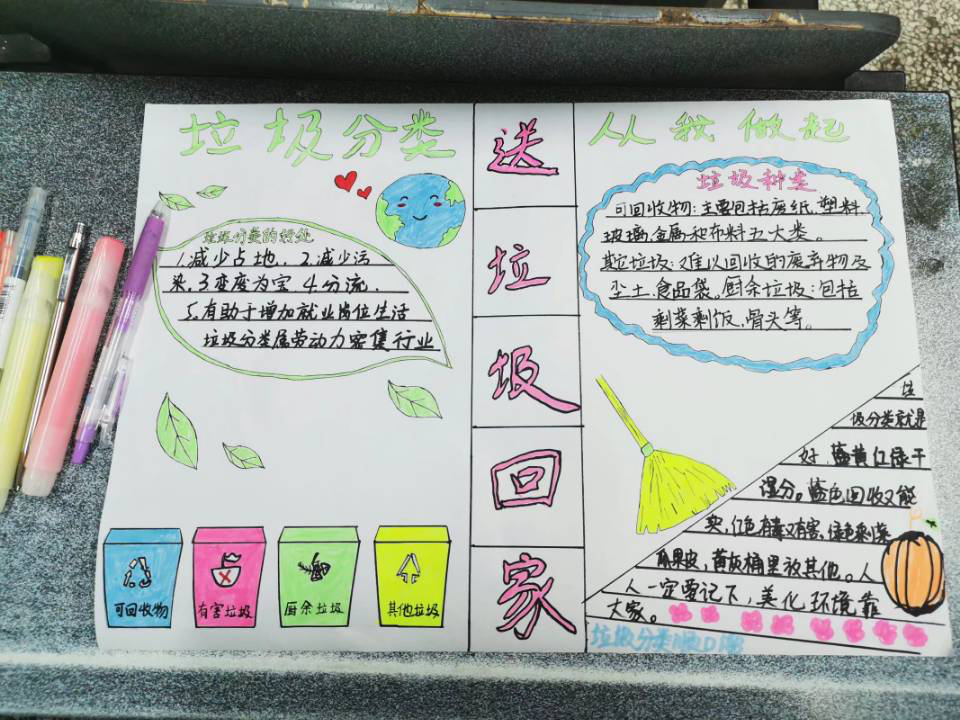 垃圾分类
垃圾分类的好处
1.减少占地,2.减少污
染,3变废为宝 4分流,
5.有助于增加就业岗位生活
垃圾分类属劳动力密集行业
可回收物
有害垃圾
厨余垃圾
其他垃圾
送
垃
圾
回
家
从我做起
垃圾种类
可回收物:主要包括废纸,塑料,
玻璃,金属和布料五大类。
其它垃圾:难以回收的废弃物及
尘土.食品袋。厨余垃圾:包括
剩菜剩饭,骨头等。
垃
圾分类就是
好,蓝黄红绿干
湿分。蓝色回收又能
卖,红色有毒又有害,绿色剩菜
瓜果皮,黄灰桶里放其他。人
人一定要记下,美化环境靠
大家。
垃圾分类顺口溜